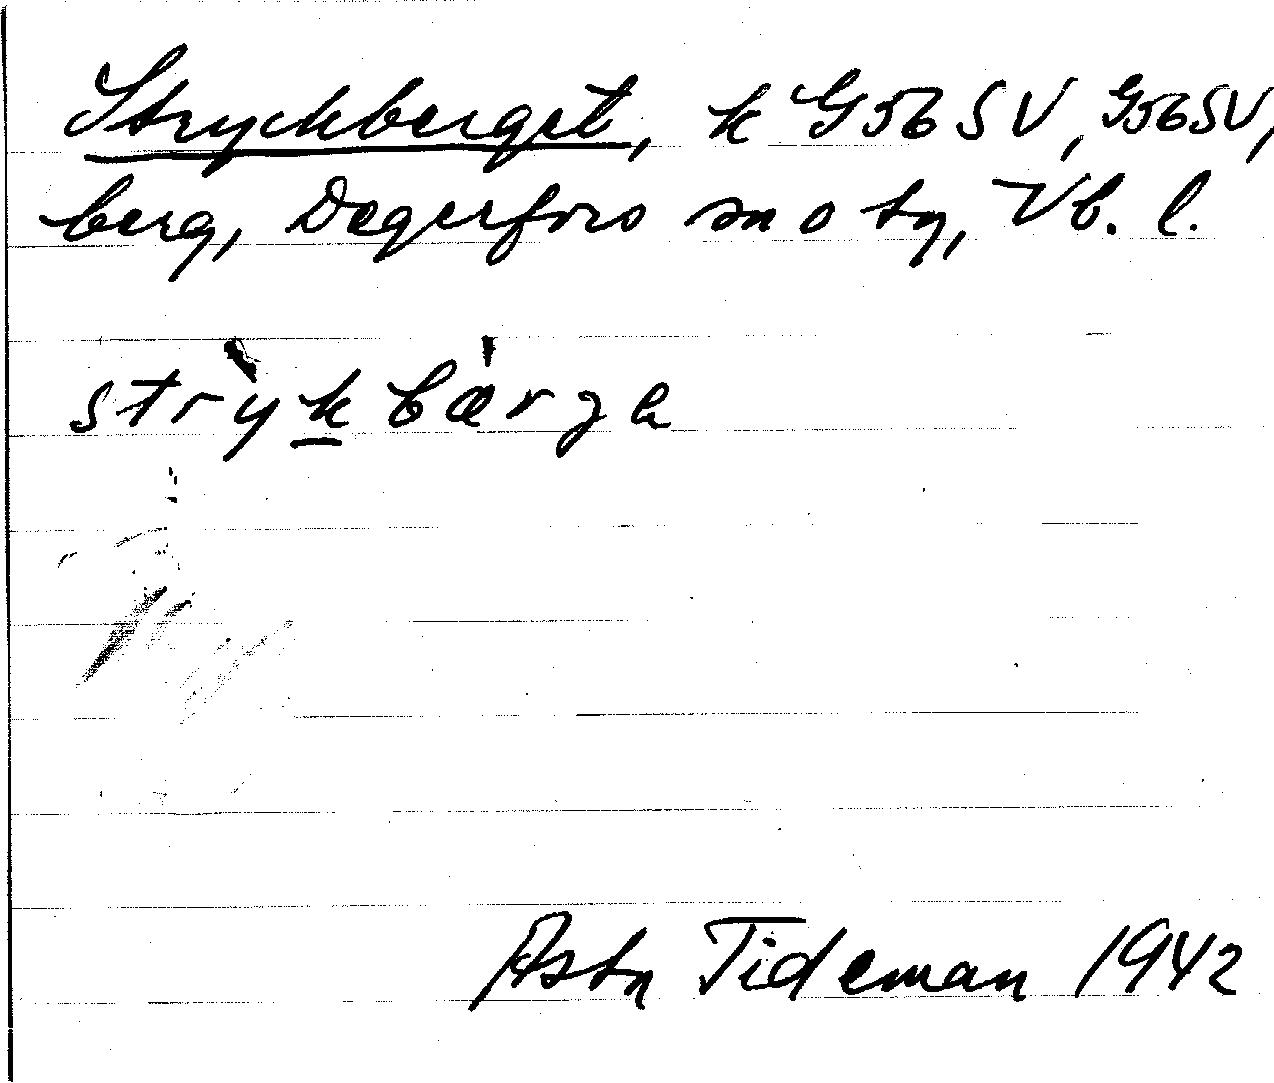 Stryckberget, k G56SV, G56SV,
berg, Degerfors sn o tg, Vb. l.
strỳk bærga
Astn Tideman 1942